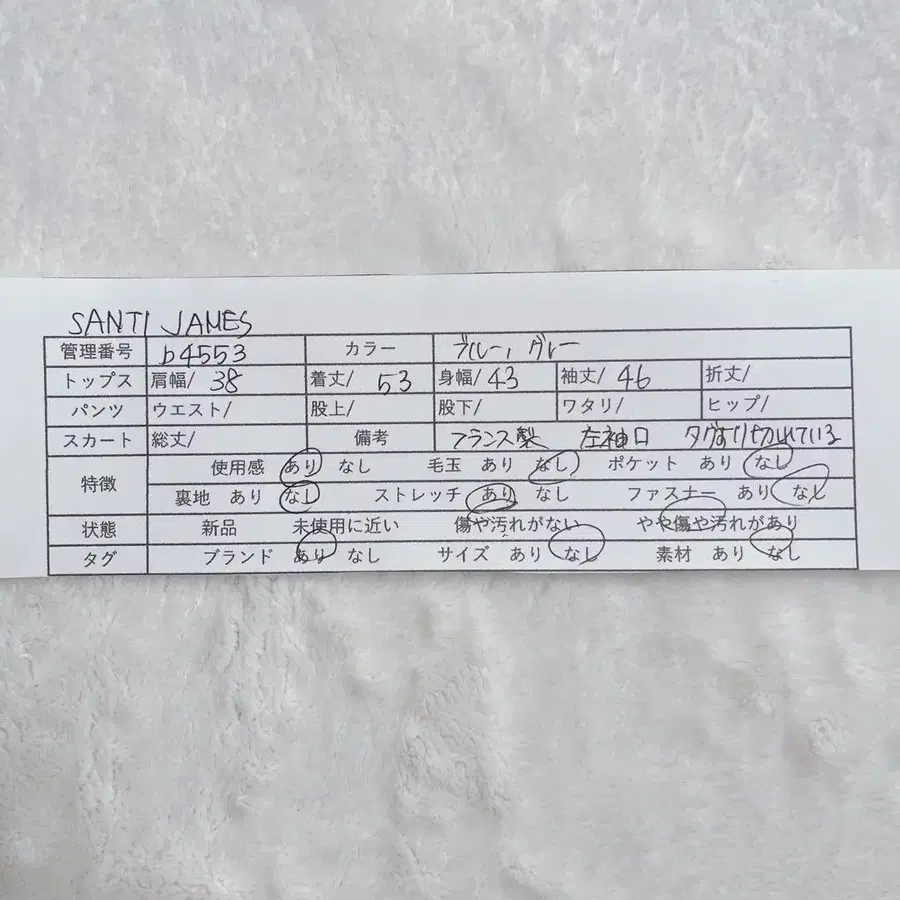 SANTI JAMES
管理番号 b4553 カラー ブルー, グレー
トップス 肩幅/ 38 着丈/ 53 身幅/ 43 袖丈/ 46 折丈/
パンツ ウエスト/ 股上/ 股下/ ワタリ/ ヒップ/
スカート 総丈/ 備考 フランス製 左袖口 タグすり切れている
特徴 使用感 あり なし 毛玉 あり なし ポケット あり なし
裏地 あり なし ストレッチ あり なし ファスナー あり なし
状態 新品 未使用に近い 傷や汚れがない やや傷や汚れがあり
タグ ブランド あり なし サイズ あり なし 素材 あり なし